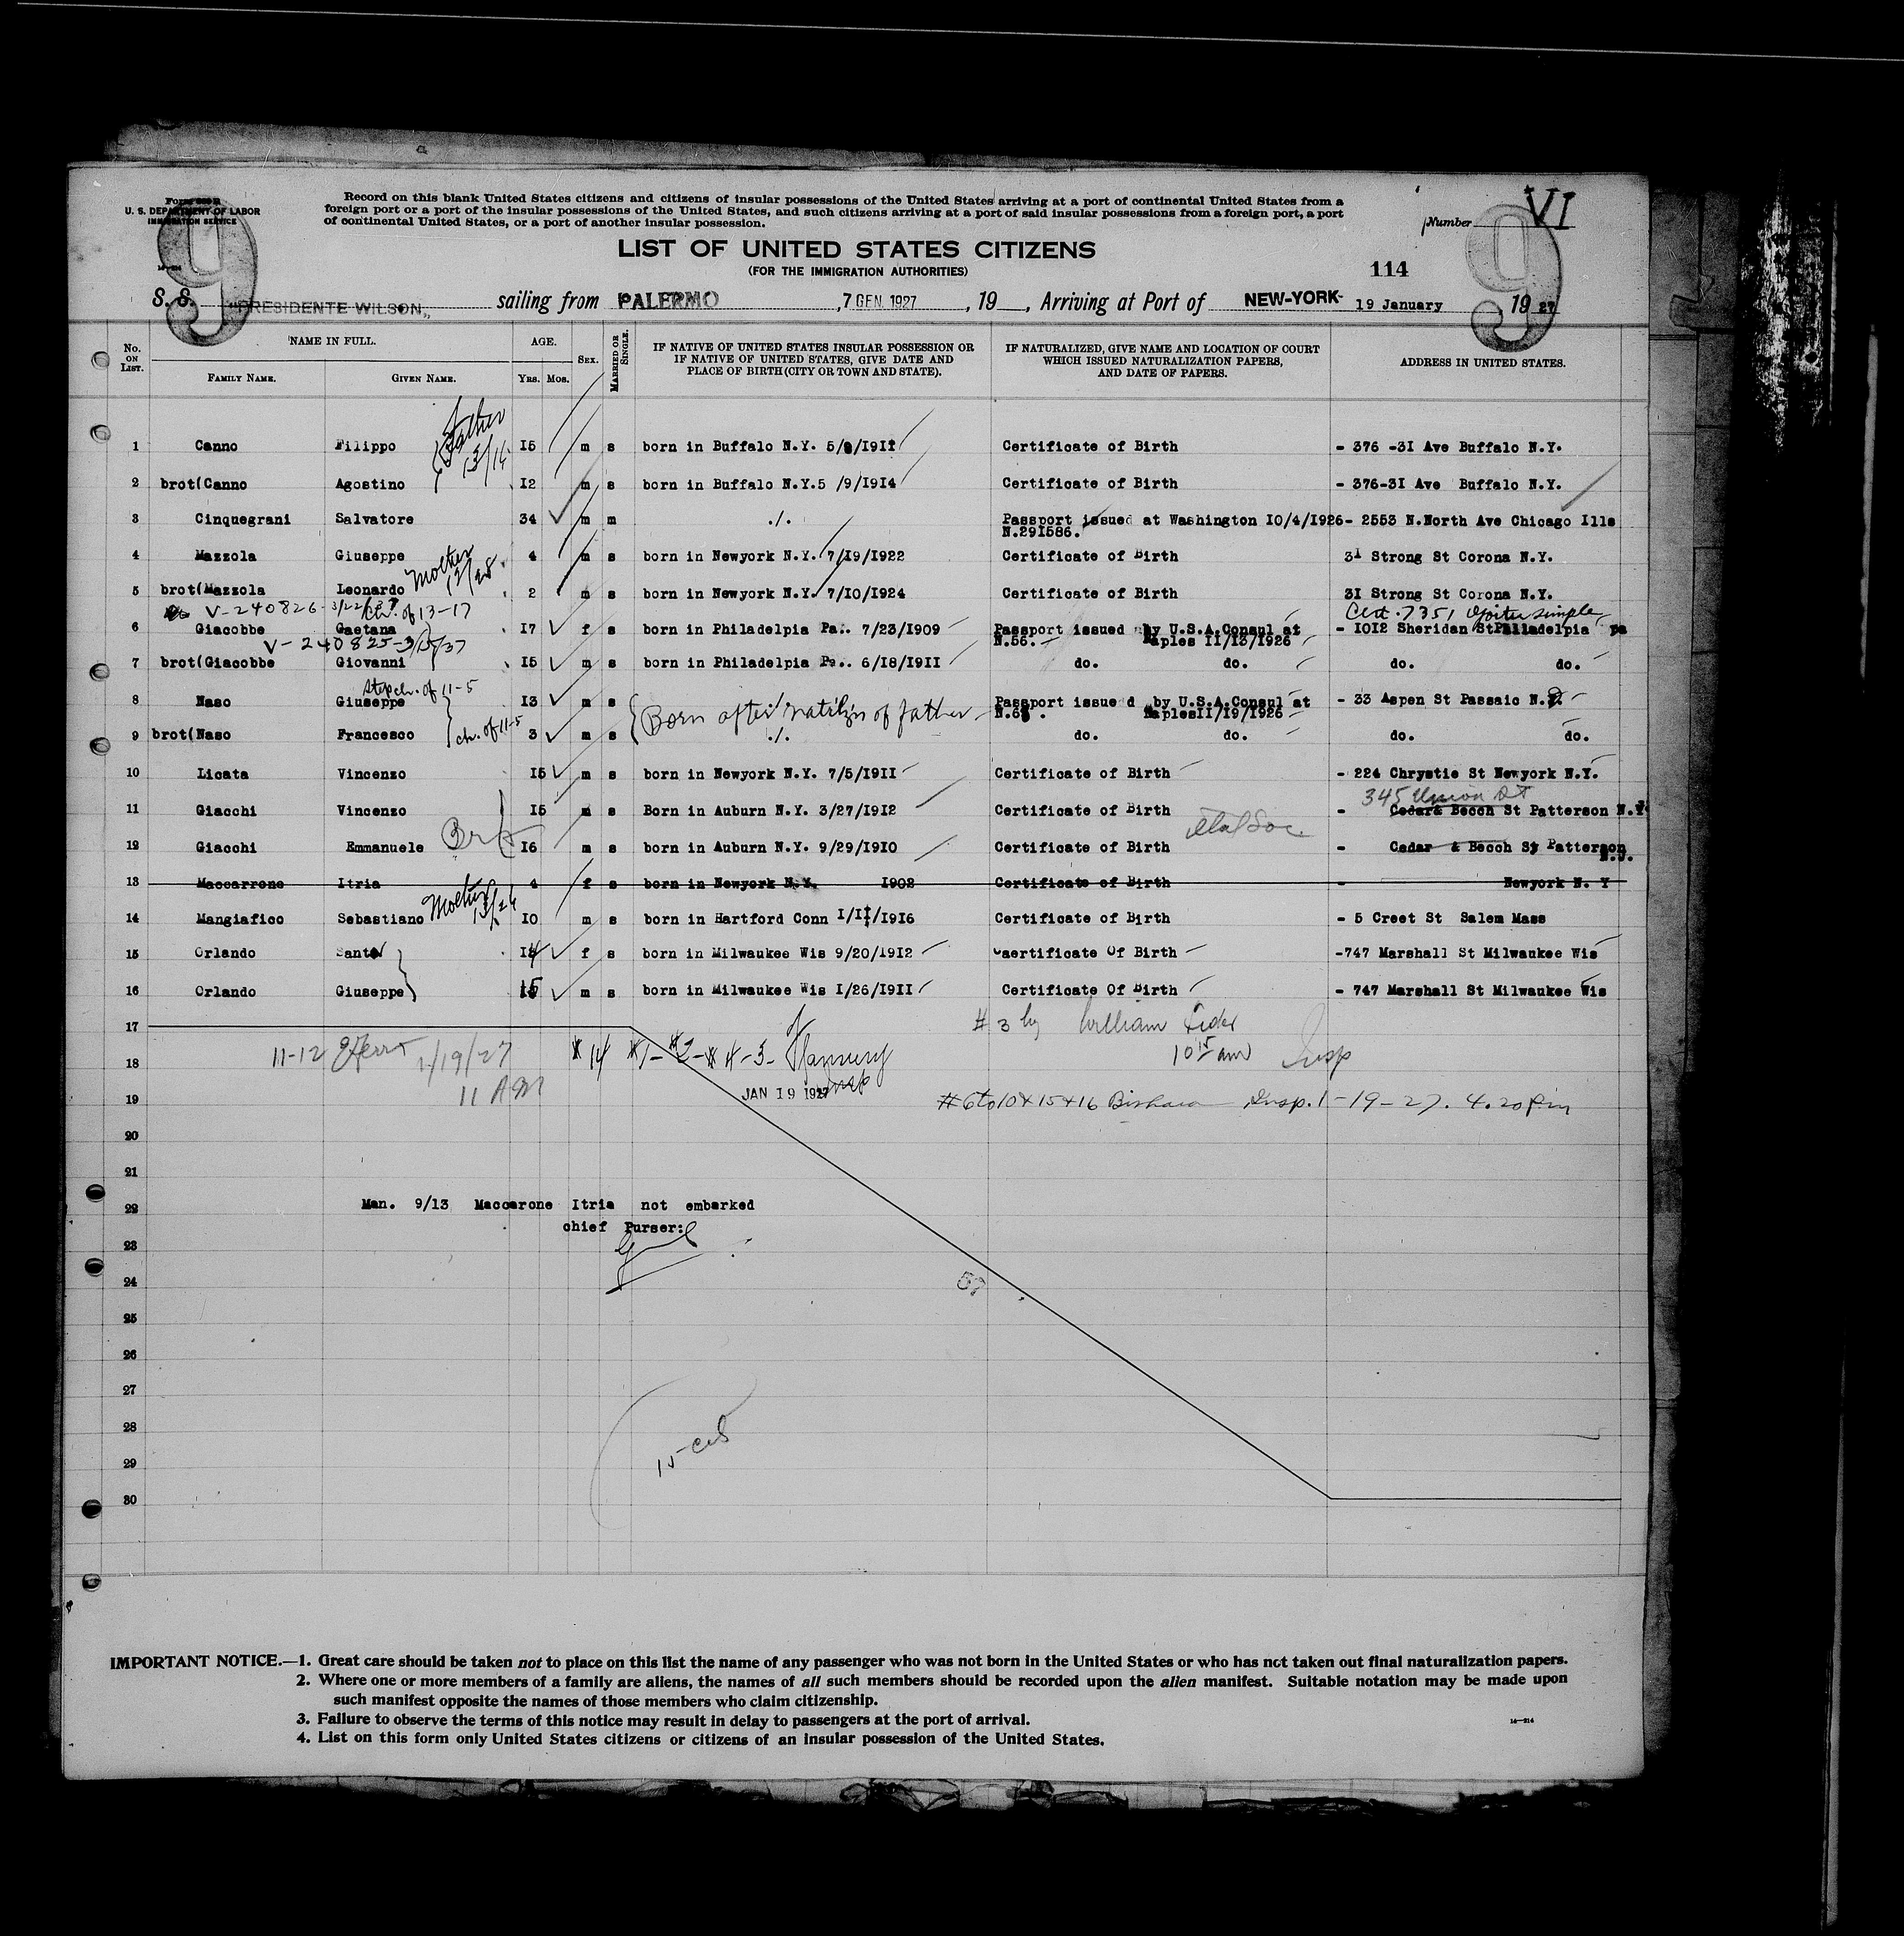 Form 630 B
U. S. DEPARTMENT OF LABOR
IMMIGRATION SERVICE
9
Record on this blank United States citizens and citizens of insular possessions of the United States arriving at a port of continental United States from a
foreign port or a port of the insular possessions of the United States, and such citizens arriving at a port of said insular possessions from a foreign port, a port
of continental United States, or a port of another insular possession.
Number VI
9
LIST OF UNITED STATES CITIZENS
(FOR THE IMMIGRATION AUTHORITIES)
114
S. S. "PRESIDENTE WILSON" sailing from PALERMO, 7 GEN. 1927, 19 , Arriving at Port of NEW-YORK- 19 January 1927
No. ON LIST. NAME IN FULL. AGE. SEX. MARRIED OR SINGLE. IF NATIVE OF UNITED STATES INSULAR POSSESSION OR IF NATIVE OF UNITED STATES, GIVE DATE AND PLACE OF BIRTH (CITY OR TOWN AND STATE). IF NATURALIZED, GIVE NAME AND LOCATION OF COURT WHICH ISSUED NATURALIZATION PAPERS, AND DATE OF PAPERS. ADDRESS IN UNITED STATES.
FAMILY NAME. GIVEN NAME. YRS. MOS.
Father 13/14
1 Canno Filippo I5 m s born in Buffalo N.Y. 5/ /I9II Certificate of Birth - 376 -3I Ave Buffalo N.Y.
2 brot(Canno Agostino I2 m s born in Buffalo N.Y.5 /9/I9I4 Certificate of Birth - 376-3I Ave Buffalo N.Y.
3 Cinquegrani Salvatore 34 m m ./. Passport issued at Washington IO/4/I926- 2553 N.North Ave Chicago Ills
N.29I586.
4 Mazzola Giuseppe 4 m s born in Newyork N.Y. 7/I9/I922 Certificate of Birth 3I Strong St Corona N.Y.
Mother 12/28
5 brot(Mazzola Leonardo 2 m s born in Newyork N.Y. 7/IO/I924 Certificate of Birth 3I Strong St Corona N.Y.
V-240826-3/22/37 Ch. of 13-17 Cert. 7351
6 Giacobbe Gaetana I7 f s born in Philadelpia Pa.. 7/23/I909 Passport issued by U.S.A.Consul at - IOI2 Sheridan StPhiladelpia pa
N.56. Naples II/I3/I926
V-240825-3/ /37
7 brot(Giacobbe Giovanni I5 m s born in Philadelpia Pa.. 6/I8/I9II do. do. do. do.
Stepch. of 11-5
8 Naso Giuseppe I3 m s Born after natlzn of father Passport issue d by U.S.A.Consul at - 33 Aspen St Passaic N.J.
N.6 . NaplesII/I9/I926
9 brot(Naso Francesco ch. of 11-5 3 m s ./. do. do. do. do.
10 Licata Vincenzo I5 m s born in Newyork N.Y. 7/5/I9II Certificate of Birth - 224 Chrystie St Newyork N.Y.
345 Union St
11 Giacchi Vincenzo I5 m s Born in Auburn N.Y. 3/27/I9I2 Certificate of Birth - Cedar& Becch St Patterson N.J.
12 Giacchi Emmanuele I6 m s born in Auburn N.Y. 9/29/I9IO Certificate of Birth - Cedar & Becch St Patterson N.J.
13 Maccarrone Itria 4 f s born in Newyork N.Y. I902 Certificate of Birth - Newyork N. Y
Mother 13/26
14 Mangiafico Sebastiano IO m s born in Hartford Conn I/II/I9I6 Certificate of Birth - 5 Creet St Salem Mass
15 Orlando Santa I4 f s born in Milwaukee Wis 9/20/I9I2 Caertificate Of Birth -747 Marshall St Milwaukee Wis
16 Orlando Giuseppe 15 m s born in Milwaukee Wis I/26/I9II Certificate Of Birth - 747 Marshall St Milwaukee Wis
17
# 3 by William
10 15 am Insp
18
11-12 1/19/27
11 AM
#14 #1-#2-#4-5- Flannery
Insp
JAN 19 1927
19
#6 to 10 & 15 & 16 Insp. 1-19-27. 4.20 Pm
20
21
22 Man. 9/13 Maccarone Itria not embarked
chief Purser:
23
24
57
25
26
27
28
15
29
30
IMPORTANT NOTICE.—1. Great care should be taken not to place on this list the name of any passenger who was not born in the United States or who has not taken out final naturalization papers.
2. Where one or more members of a family are aliens, the names of all such members should be recorded upon the alien manifest. Suitable notation may be made upon
such manifest opposite the names of those members who claim citizenship.
3. Failure to observe the terms of this notice may result in delay to passengers at the port of arrival.
14—214
4. List on this form only United States citizens or citizens of an insular possession of the United States.